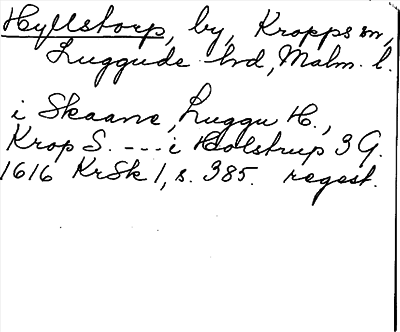 Hyllstorp, by, Kropps sn,
Luggude hd, Malm. l.
i Skaane, Luggu H.,
Krop S. ---- i Holstrup 3 G.
1616 KrSk 1, s. 385. regest.